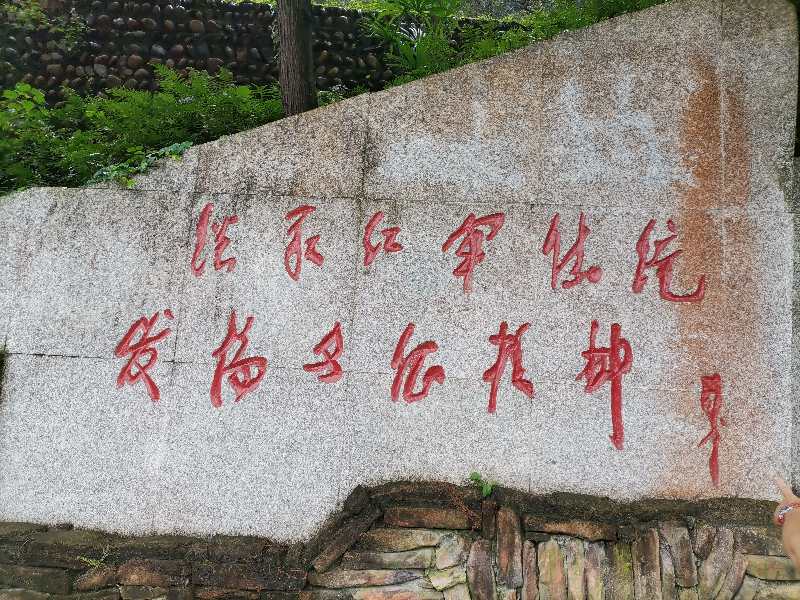 继承红军传统
发扬长征精神